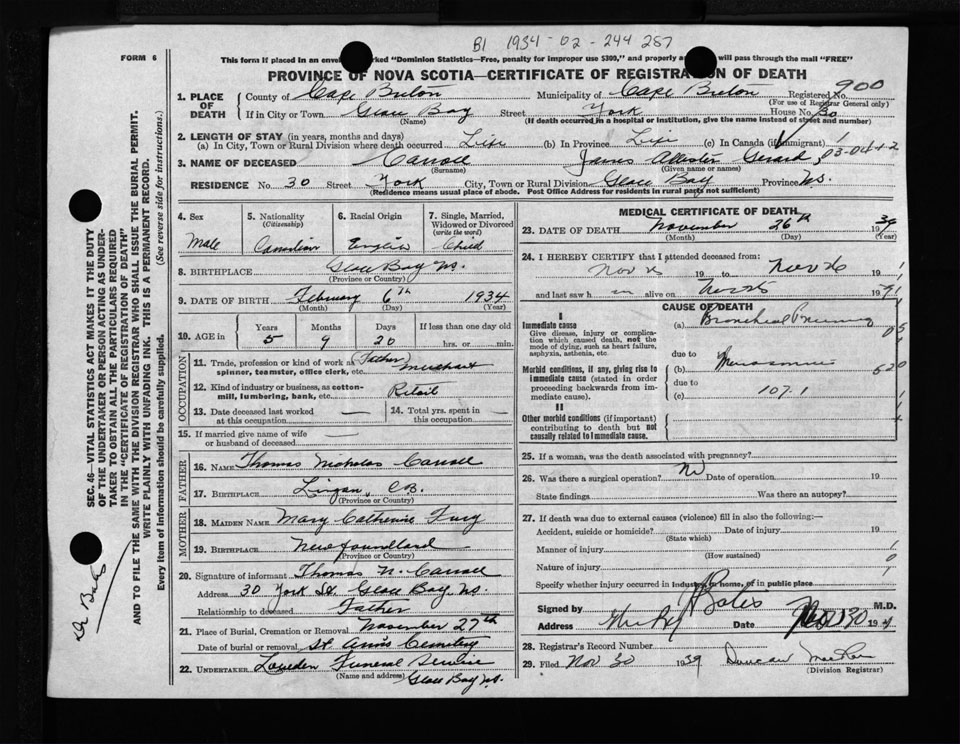 B1 1934-02-244257
FORM 6
This form if placed in an envelope marked "Dominion Statistics—Free, penalty for improper use $300," and properly addressed will pass through the mail "FREE"
PROVINCE OF NOVA SCOTIA—CERTIFICATE OF REGISTRATION OF DEATH
900
1. PLACE OF DEATH
County of Cape Breton Municipality of Cape Breton Registered No.
(For use of Registrar General only)
If in City or Town Glace Bay Street York House No. 30
(Name) (If death occurred in a hospital or institution, give the name instead of street and number)
2. LENGTH OF STAY (in years, months and days)
(a) In City, Town or Rural Division where death occurred Life (b) In Province Life (c) In Canada (if immigrant)
3. NAME OF DECEASED Carroll James Gerard
(Surname) (Given name or names)
RESIDENCE No. 30 Street York City, Town or Rural Division Glace Bay Province N.S.
(Residence means usual place of abode. Post Office Address for residents in rural parts not sufficient)
4. Sex
Male
5. Nationality
(Citizenship)
Canadian
6. Racial Origin
English
7. Single, Married, Widowed or Divorced
(write the word)
Child
8. BIRTHPLACE Glace Bay N.S.
(Province or Country)
9. DATE OF BIRTH February 6th 1934
(Month) (Day) (Year)
10. AGE in
Years Months Days If less than one day old
5 9 20 hrs. or min.
OCCUPATION
11. Trade, profession or kind of work as Father Merchant
spinner, teamster, office clerk, etc.
12. Kind of industry or business, as cotton-
mill, lumbering, bank, etc. Retail
13. Date deceased last worked
at this occupation —
14. Total yrs. spent in
this occupation —
15. If married give name of wife
or husband of deceased —
FATHER
16. NAME Thomas Nicholas Carroll
17. BIRTHPLACE Lingan, C.B.
(Province or Country)
MOTHER
18. MAIDEN NAME Mary Catherine Fury
19. BIRTHPLACE Newfoundland
(Province or Country)
20. Signature of informant Thomas N. Carroll
Address 30 York St. Glace Bay N.S.
Relationship to deceased Father
21. Place of Burial, Cremation or Removal November 27th
Date of burial or removal St. Ann's Cemetery
22. UNDERTAKER Lowden Funeral Service
(Name and address) Glace Bay N.S.
MEDICAL CERTIFICATE OF DEATH
23. DATE OF DEATH November 26th 1939
(Month) (Day) (Year)
24. I HEREBY CERTIFY that I attended deceased from:
19 to Nov 26 19
and last saw h alive on 19
CAUSE OF DEATH
I
Immediate cause
Give disease, injury or complica-
tion which caused death, not the
mode of dying, such as heart failure,
asphyxia, asthenia, etc.
(a) Bronchial
due to
Morbid conditions, if any, giving rise to
immediate cause (stated in order
proceeding backwards from im-
mediate cause).
(b)
due to
(c) 107.1
II
Other morbid conditions (if important)
contributing to death but not
causally related to immediate cause.
25. If a woman, was the death associated with pregnancy?
26. Was there a surgical operation? No Date of operation 19
State findings Was there an autopsy?
27. If death was due to external causes (violence) fill in also the following:—
Accident, suicide or homicide? Date of injury 19
(State which)
Manner of injury
(How sustained)
Nature of injury
Specify whether injury occurred in industry, in home, or in public place
Signed by Bates M.D.
Address Date Nov 30 19
28. Registrar's Record Number
29. Filed Nov 30 1939
(Division Registrar)
SEC. 46—VITAL STATISTICS ACT MAKES IT THE DUTY
OF THE UNDERTAKER OR PERSON ACTING AS UNDER-
TAKER TO OBTAIN ALL THE PARTICULARS REQUIRED
IN THE "CERTIFICATE OF REGISTRATION OF DEATH"
AND TO FILE THE SAME WITH THE DIVISION REGISTRAR WHO SHALL ISSUE THE BURIAL PERMIT.
WRITE PLAINLY WITH UNFADING INK. THIS IS A PERMANENT RECORD.
Every item of information should be carefully supplied. (See reverse side for instructions.)
Dr Bates